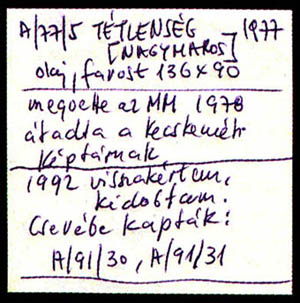 A/77/5 TÉTLENSÉG 1977
[NAGYMAROS]
olaj, farost 136×90
megvette az MM 1978
átadta a kecskeméti
képtárnak
1992 visszakértem,
kidobtam.
Cserébe kapták:
A/91/30, A/91/31